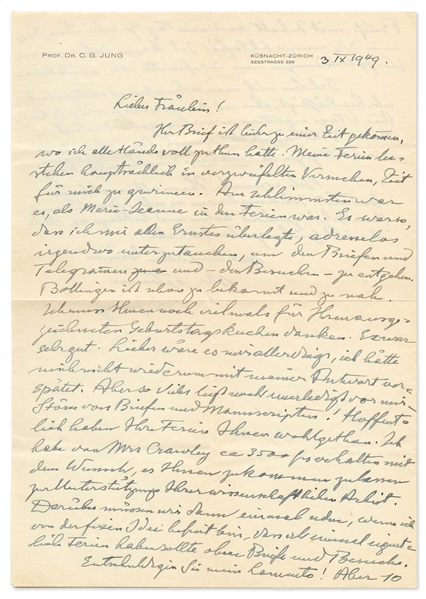 PROF. DR. C. G. JUNG
KÜSNACHT-ZÜRICH
SEESTRASSE 228
3 IX 1949.
Liebes Fräulein!
Ihr Brief ist leider zu einer Zeit gekommen,
wo ich alle Hände voll zu thun hatte. Meine Ferien bestehen
hauptsächlich in verzweifelten Versuchen, Zeit
für mich zu gewinnen. Am schlimmsten war
es, als Marie-Jeanne in den Ferien war. Es war so,
dass ich mir allen Ernstes überlegte, adresslos
irgendwo unterzutauchen, um den Briefen und
Telegrammen und - den Besuchen - zu entgehen.
Bollingen ist schon zu bekannt und zu nah.
Ich muss Ihnen noch vielmals für Ihren ausge-
zeichneten Geburtstagskuchen danken. Er war
sehr gut. Lieber wäre es mir allerdings, ich hätte
mich nicht wiederum mit meiner Antwort ver-
spätet. Aber so viel liegt noch unerledigt vor mir
von Briefen und Manuscripten! Hoffent-
lich haben Ihre Ferien Ihnen wohlgethan. Ich
habe von Mrs Crowley ca 3500 frs erhalten mit
dem Wunsch, es Ihnen zukommen zu lassen
zur Unterstützung Ihrer wissenschaftlichen Arbeit.
Darüber müssen wir dann einmal reden, wenn ich
von der fixen Idee befreit bin, dass ich einmal eigent-
liche Ferien haben sollte ohne Briefe und Besuche.
Entschuldigen Sie mein Lamento! Aber 10